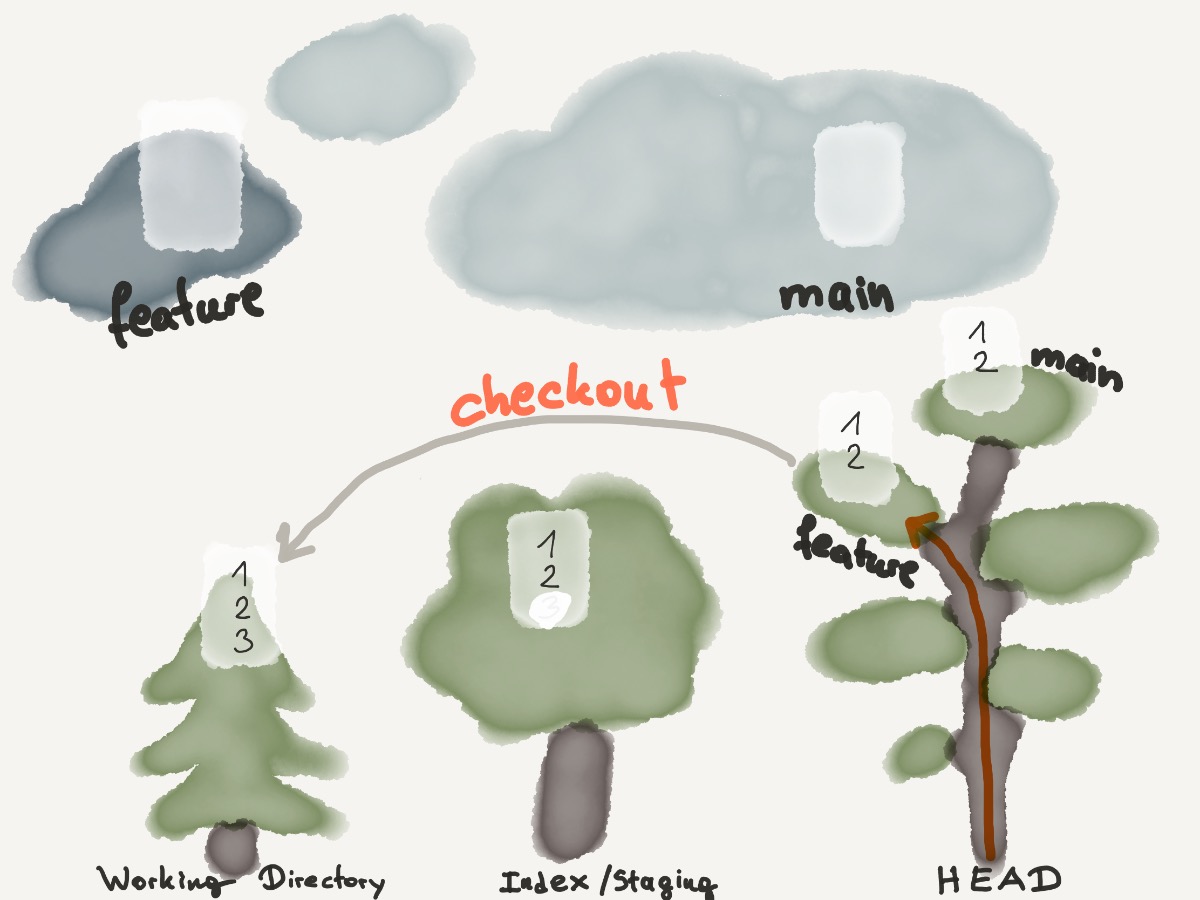 feature
main
checkout
1
2
main
1
2
feature
1
2
3
1
2
3
Working Directory
Index/Staging
HEAD